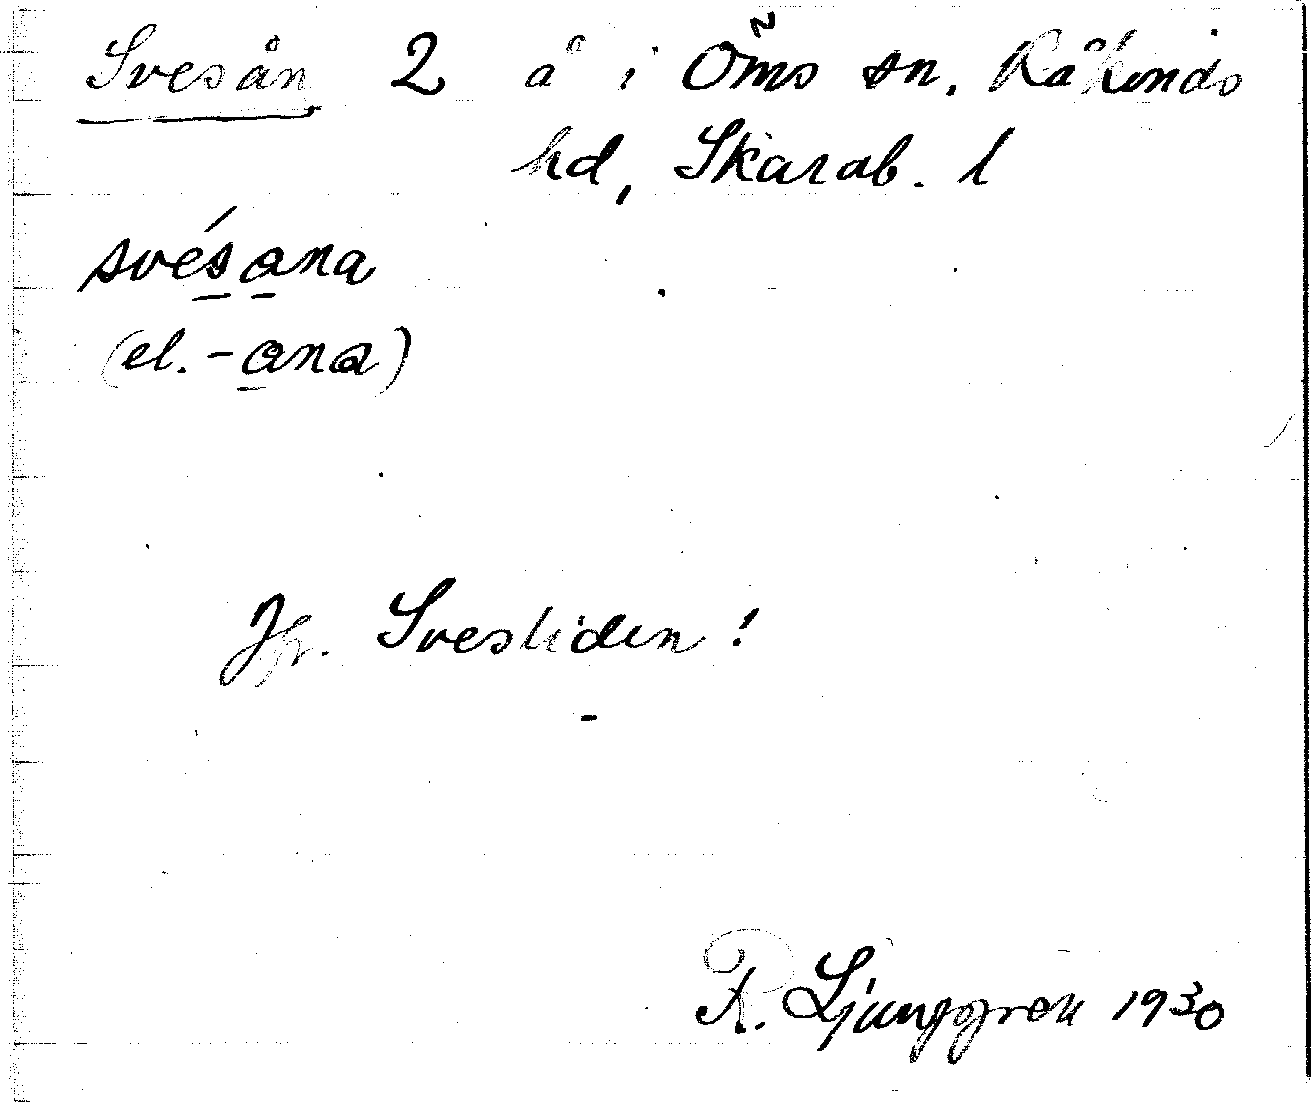 Svesån 2 å i Öms sn. Kåkinds
hd, Skarab. l
svésana
(el. -ana)
Jfr. Svesliden!
R. Ljunggren 1930